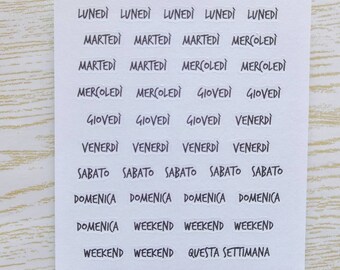 LUNEDÌ LUNEDÌ LUNEDÌ LUNEDÌ LUNEDÌ
MARTEDÌ MARTEDÌ MARTEDÌ MERCOLEDÌ
MARTEDÌ MARTEDÌ MERCOLEDÌ MERCOLEDÌ
MERCOLEDÌ MERCOLEDÌ GIOVEDÌ GIOVEDÌ
GIOVEDÌ GIOVEDÌ GIOVEDÌ VENERDÌ
VENERDÌ VENERDÌ VENERDÌ VENERDÌ
SABATO SABATO SABATO SABATO SABATO
DOMENICA DOMENICA DOMENICA DOMENICA
DOMENICA WEEKEND WEEKEND WEEKEND
WEEKEND WEEKEND QUESTA SETTIMANA